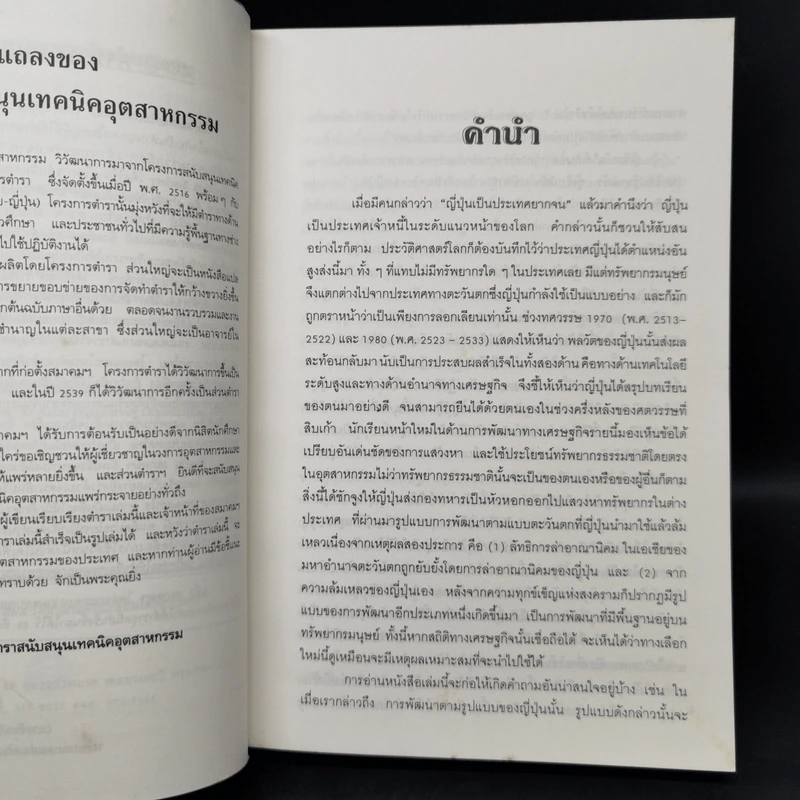 แถลงของ
นุนเทคนิคอุตสาหกรรม
สาหกรรม วิวัฒนาการมาจากโครงการสนับสนุนเทคนิค
ารตำรา ซึ่งจัดตั้งขึ้นเมื่อปี พ.ศ. 2516 พร้อมๆ กับ
ย-ญี่ปุ่น) โครงการตำรานั้นมุ่งหวังที่จะให้มีตำราทางด้าน
วศึกษา และประชาชนทั่วไปที่มีความรู้พื้นฐานทางช่าง
ไปใช้ปฏิบัติงานได้
ผลิตโดยโครงการตำรา ส่วนใหญ่จะเป็นหนังสือแปล
ารขยายขอบข่ายของการจัดทำตำราให้กว้างขวางยิ่งขึ้น
กต้นฉบับภาษาอื่นด้วย ตลอดจนงานรวบรวมและงาน
ชำนาญในแต่ละสาขา ซึ่งส่วนใหญ่จะเป็นอาจารย์ใน
ากที่ก่อตั้งสมาคมฯ โครงการตำราได้วิวัฒนาการขึ้นเป็น
และในปี 2539 ก็ได้วิวัฒนาการอีกครั้งเป็นส่วนตำรา
าคมฯ ได้รับการต้อนรับเป็นอย่างดีจากนิสิตนักศึกษา
ใคร่ขอเชิญชวนให้ผู้เชี่ยวชาญในวงการอุตสาหกรรมและ
ห้แพร่หลายยิ่งขึ้น และส่วนตำราฯ ยินดีที่จะสนับสนุน
นิคอุตสาหกรรมแพร่กระจายอย่างทั่วถึง
ผู้เขียนเรียบเรียงตำราเล่มนี้และเจ้าหน้าที่ของสมาคมฯ
ำราเล่มนี้สำเร็จเป็นรูปเล่มได้ และหวังว่าตำราเล่มนี้ จะ
ตสาหกรรมของประเทศ และหากท่านผู้อ่านมีข้อชี้แนะ
ทราบด้วย จักเป็นพระคุณยิ่ง
ราสนับสนุนเทคนิคอุตสาหกรรม
คำนำ
เมื่อมีคนกล่าวว่า “ญี่ปุ่นเป็นประเทศยากจน” แล้วมาคำนึงว่า ญี่ปุ่น
เป็นประเทศเจ้าหนี้ในระดับแนวหน้าของโลก คำกล่าวนั้นก็ชวนให้สับสน
อย่างไรก็ตาม ประวัติศาสตร์โลกก็ต้องบันทึกไว้ว่าประเทศญี่ปุ่นได้ตำแหน่งอัน
สูงส่งนี้มา ทั้ง ๆ ที่แทบไม่มีทรัพยากรใด ๆ ในประเทศเลย มีแต่ทรัพยากรมนุษย์
จึงแตกต่างไปจากประเทศทางตะวันตกซึ่งญี่ปุ่นกำลังใช้เป็นแบบอย่าง และก็มัก
ถูกตราหน้าว่าเป็นเพียงการลอกเลียนเท่านั้น ช่วงทศวรรษ 1970 (พ.ศ. 2513–
2522) และ 1980 (พ.ศ. 2523 – 2533) แสดงให้เห็นว่า พลวัตของญี่ปุ่นนั้นส่งผล
สะท้อนกลับมา นับเป็นการประสบผลสำเร็จในทั้งสองด้าน คือทางด้านเทคโนโลยี
ระดับสูงและทางด้านอำนาจทางเศรษฐกิจ จึงชี้ให้เห็นว่าญี่ปุ่นได้สรุปบทเรียน
ของตนมาอย่างดี จนสามารถยืนได้ด้วยตนเองในช่วงครึ่งหลังของศตวรรษที่
สิบเก้า นักเรียนหน้าใหม่ในด้านการพัฒนาทางเศรษฐกิจรายนี้มองเห็นข้อได้
เปรียบอันเด่นชัดของการแสวงหา และใช้ประโยชน์ทรัพยากรธรรมชาติโดยตรง
ในอุตสาหกรรมไม่ว่าทรัพยากรธรรมชาตินั้นจะเป็นของตนเองหรือของผู้อื่นก็ตาม
สิ่งนี้ได้ชักจูงให้ญี่ปุ่นส่งกองทหารเป็นหัวหอกออกไปแสวงหาทรัพยากรในต่าง
ประเทศ ที่ผ่านมารูปแบบการพัฒนาตามแบบตะวันตกที่ญี่ปุ่นนำมาใช้แล้วล้ม
เหลวเนื่องจากเหตุผลสองประการ คือ (1) ลัทธิการล่าอาณานิคม ในเอเซียของ
มหาอำนาจตะวันตกถูกยับยั้งโดยการล่าอาณานิคมของญี่ปุ่น และ (2) จาก
ความล้มเหลวของญี่ปุ่นเอง หลังจากความทุกข์เข็ญแห่งสงครามก็ปรากฏมีรูป
แบบของการพัฒนาอีกประเภทหนึ่งเกิดขึ้นมา เป็นการพัฒนาที่มีพื้นฐานอยู่บน
ทรัพยากรมนุษย์ ทั้งนี้หากสถิติทางเศรษฐกิจนั้นเชื่อถือได้ จะเห็นได้ว่าทางเลือก
ใหม่นี้ดูเหมือนจะมีเหตุผลเหมาะสมที่จะนำไปใช้ได้
การอ่านหนังสือเล่มนี้จะก่อให้เกิดคำถามอันน่าสนใจอยู่บ้าง เช่น ใน
เมื่อเรากล่าวถึง การพัฒนาตามรูปแบบของญี่ปุ่นนั้น รูปแบบดังกล่าวนั้นจะ